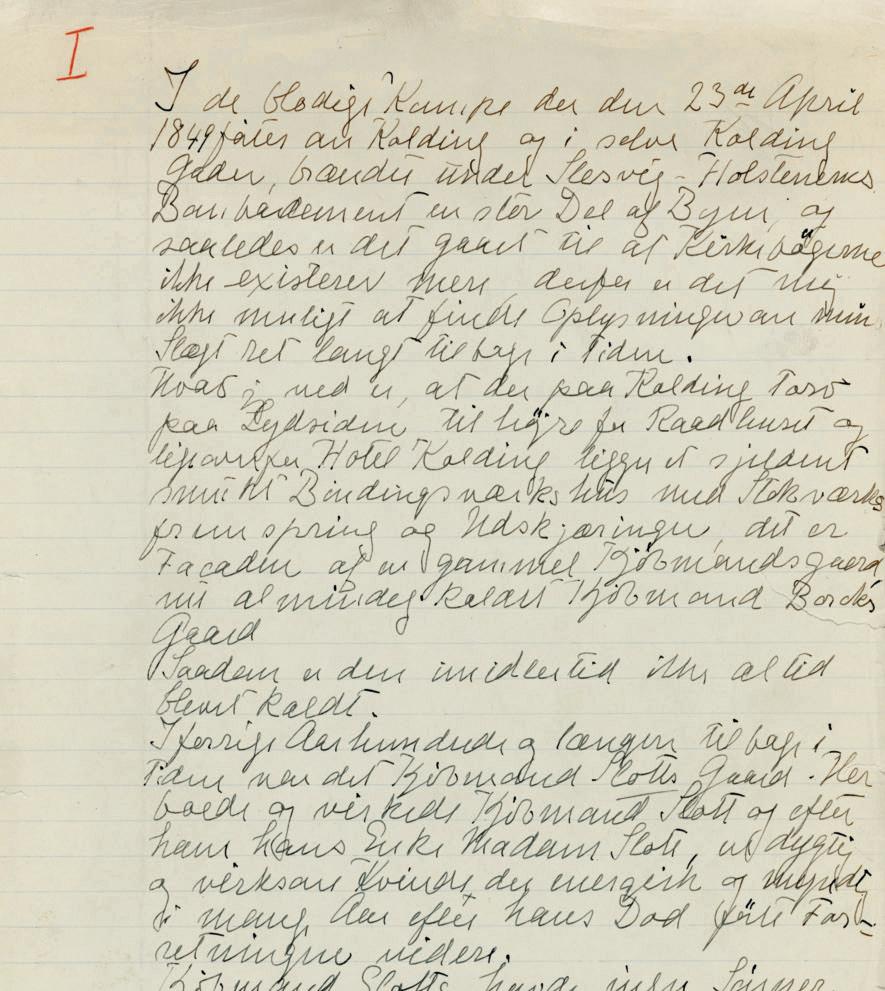 I
I de blodige Kampe der den 23de April
1849 førtes om Kolding og i selve Kolding
Gader, brændte under Slesvig-Holstenernes
Bombardement en stor Del af Byen, og
saaledes er det gaaet til at Kirkebøgerne
ikke existerer mere, derfor er det mig
ikke muligt at finde Oplysninger om min
Slægt ret langt tilbage i Tiden.
Hvad jeg ved er, at der paa Kolding Torv
paa Sydsiden til højre for Raadhuset og
ligeoverfor Hotel Kolding ligger et sjeldent
smukt Bindingsværkshus med Stokværks
fremspring og Udskjæringer, det er
Facaden af en gammel Kjøbmandsgaard
nu almindeg kaldet Kjøbmand Borchs
Gaard
Saadan er den imidlertid ikke altid
blevet kaldt.
I forrige Aarhundrede og længere tilbage i
Tiden var det Kjøbmand Slotts Gaard. Her
boede og virkede Kjøbmand Slott og efter
ham hans Enke Madam Slott, en dygtig
og virksom Kvinde, der energisk og myndig
i mange Aar efter hans Død førte For-
retningen videre.
Kjøbmand Slotts havde ingen Sønner